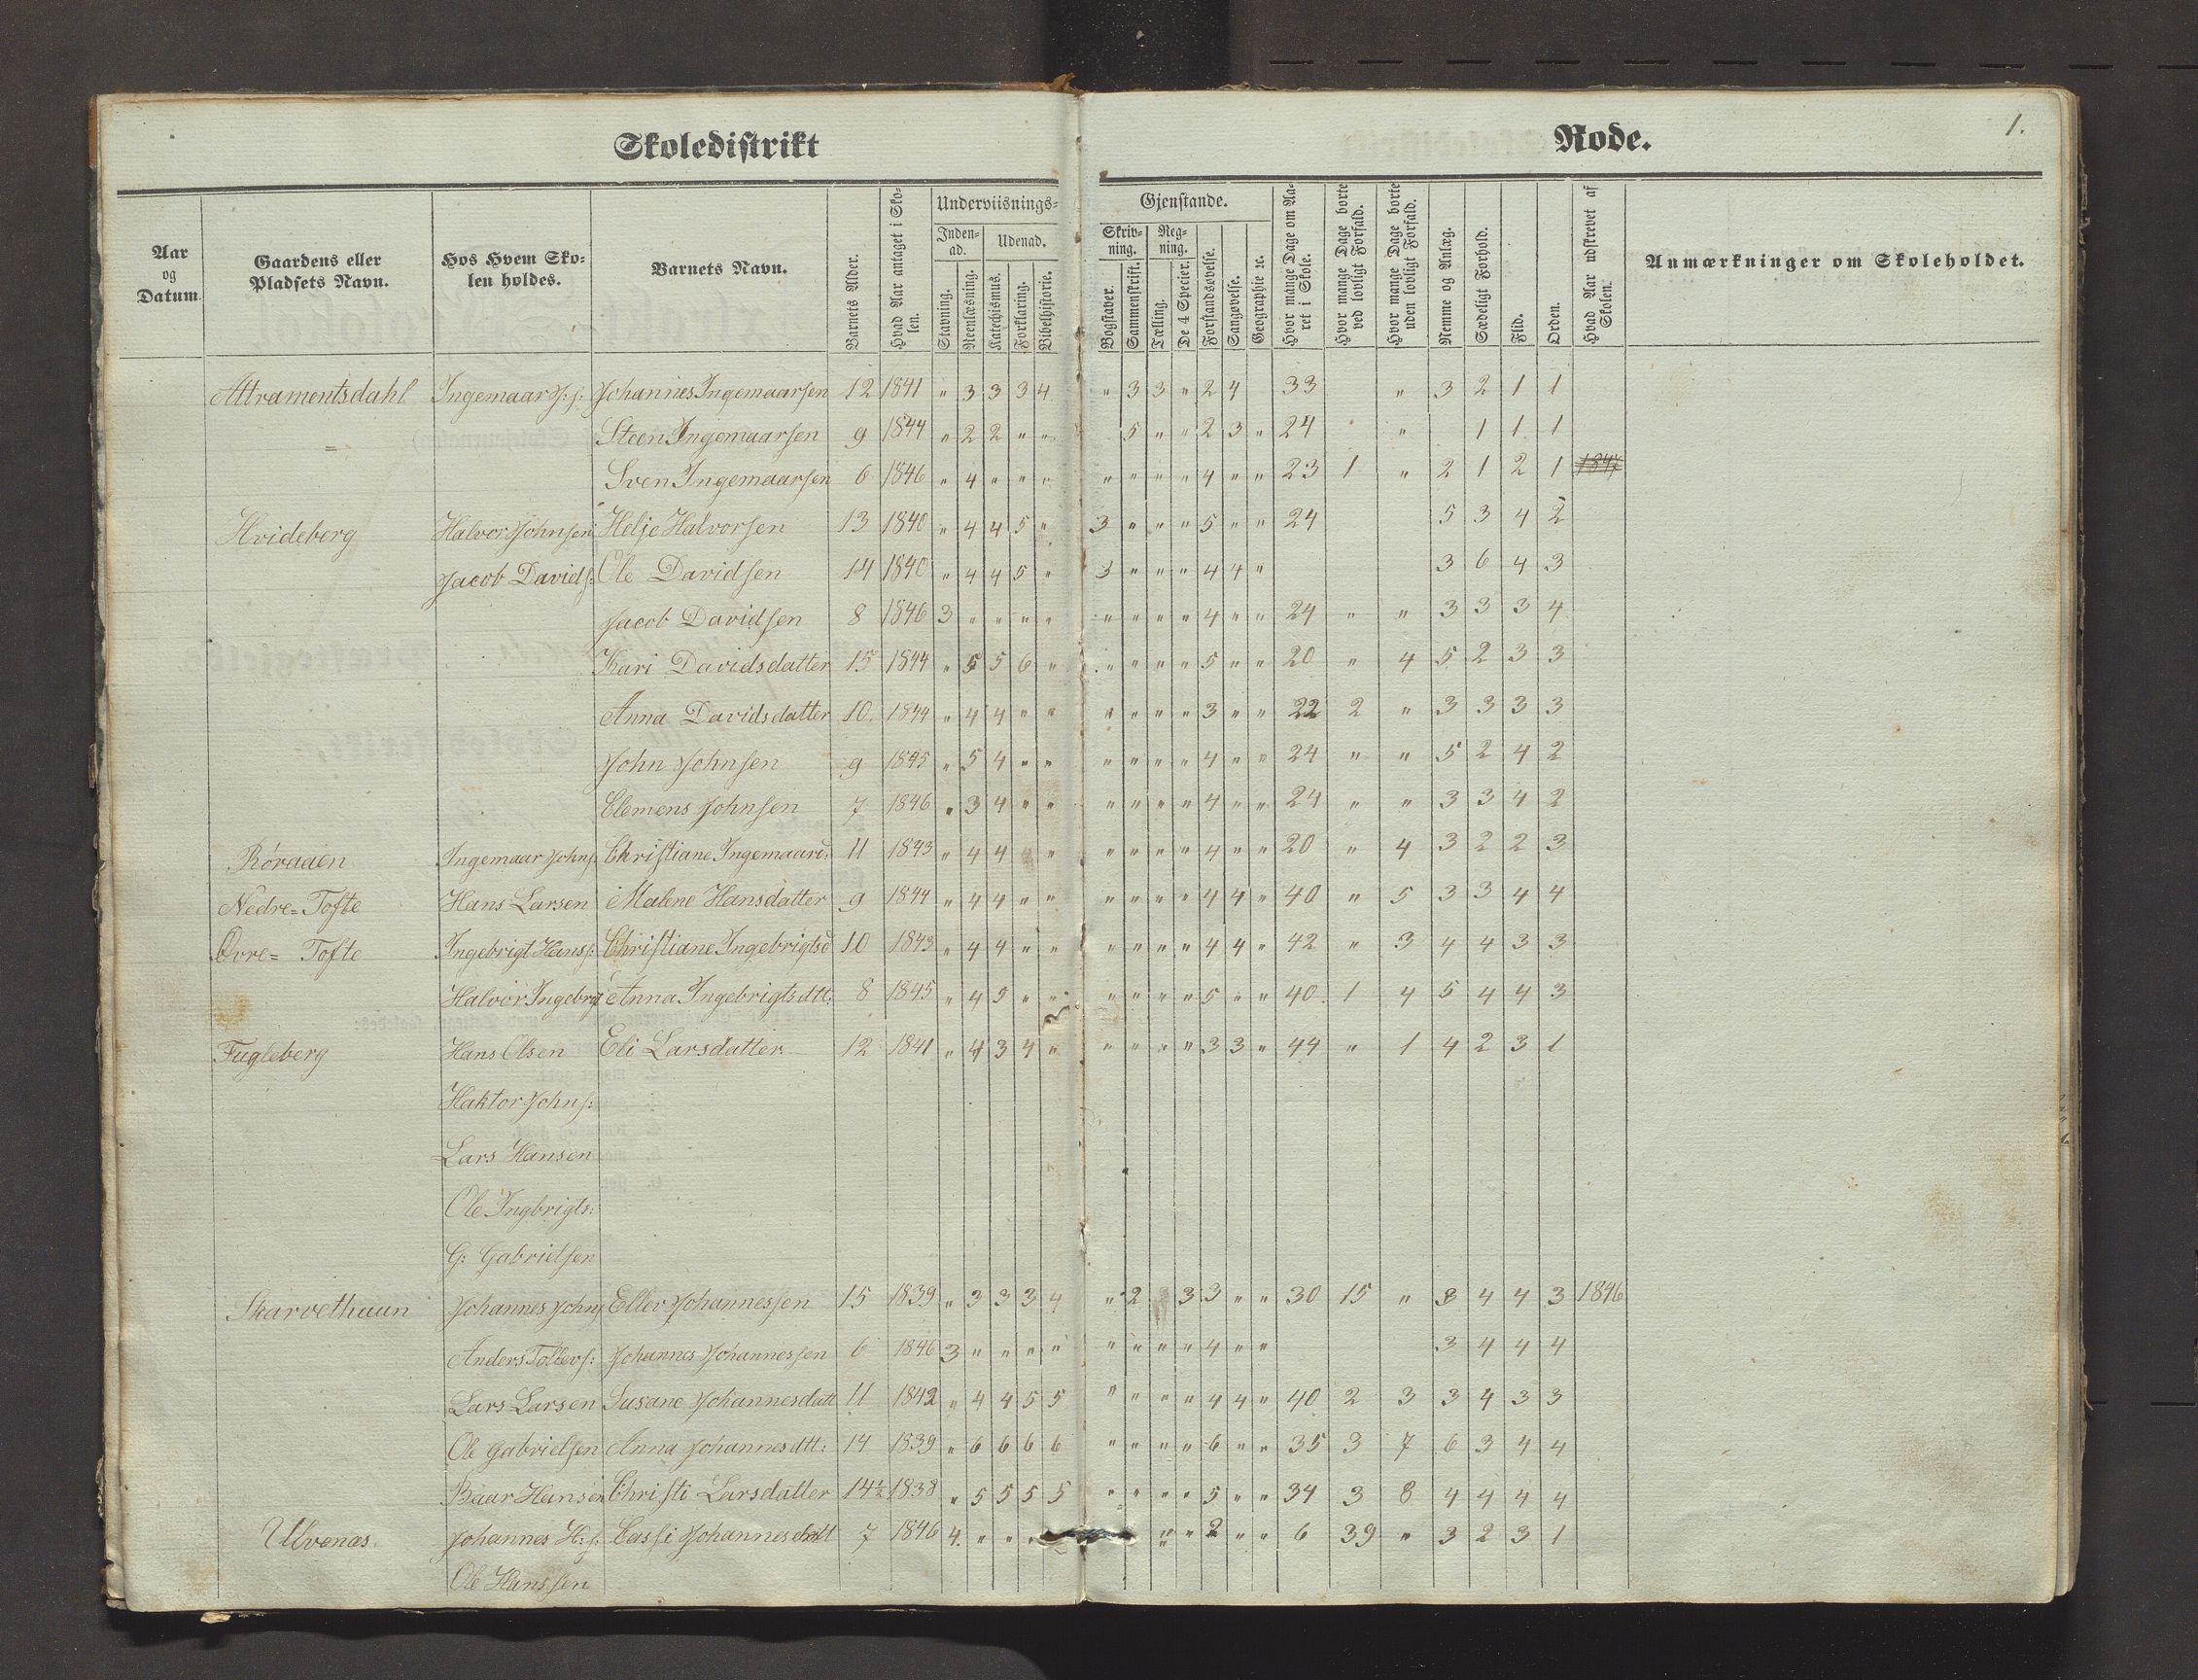 Skoledistrikt
Rode.
1.
Aar og Datum. Gaardens eller Pladsets Navn. Hos Hvem Skolen holdes. Barnets Navn. Barnets Alder. Hvad Aar antaget i Skolen. Underviisnings- Gjenstande. Hvor mange Dage om Aaret i Skole. Hvor mange Dage borte ved lovligt Forfald. Hvor mange Dage borte uden lovligt Forfald. Nemme og Anlæg. Sædeligt Forhold. Flid. Orden. Hvad Aar udskrevet af Skolen. Anmærkninger om Skoleholdet.
Inden- ad. Udenad. Skriv- ning. Reg- ning.
Stavning. Reenlæsning. Katechismus. Forklaring. Bibelhistorie. Bogstaver. Sammenskrift. Tælling. De 4 Specier. Forstandsøvelse. Sangøvelse. Geographie ꝛc.
Attramentsdahl Ingemaar J: s: Johannes Ingemaarsen 12 1841 " 3 3 3 4 " 3 3 " 2 4 33 " 3 2 1 1
= Steen Ingemaarsen 9 1844 " 2 2 " " 5 " " 2 3 " 24 " 1 1 1
Sven Ingemaarsen 6 1846 " 4 " " " " " " " 4 " " 23 1 " 2 1 2 1 1847
Hvideberg Halvor Johnsen Helje Halvorsen 13 1840 " 4 4 5 " 3 " " " 5 " " 24 5 3 4 2
Jacob Davids: Ole Davidsen 14 1840 " 4 4 5 " 3 " " " 4 4 " 3 6 4 3
Jacob Davidsen 8 1846 3 " " " " " " " " 4 " " 24 " " 3 3 3 4
Kari Davidsdatter 15 1844 " 5 5 6 " " " " " 5 " " 20 " 4 5 2 3 3
Anna Davidsdatter 10. 1844 " 4 4 " " " " " " 3 " " 22 2 " 3 3 3 3
John Johnsen 9 1845 " 5 4 " " " " " " 4 " " 24 " " 5 2 4 2
Clemens Johnsen 7 1846 " 3 4 " " " " " " 4 " " 24 " " 3 3 4 2
Röraaen Ingemaar Johns: Christiane Ingemaard: 11 1843 " 4 4 " " " " " 4 " " 20 " 4 3 2 2 3
Nedre= Tofte Hans Larsen Malene Hansdatter 9 1844 " 4 4 " " " " " " 4 4 " 40 " 5 3 3 4 4
Øvre= Tofte Ingebrigt Hanss: Christiane Ingebrigtsd 10 1843 " 4 4 " " " " " " 4 4 " 42 " 3 4 4 3 3
Halvor Ingebrg Anna Ingebrigtsdtt: 8 1845 " 4 5 " " " " " " 5 " " 40 1 4 5 4 4 3
Fugleberg Hans Olsen Eli Larsdatter 12 1841 " 4 3 4 " " " " " 3 3 " 44 " 1 4 2 3 1
Haktor Johns:
Lars Hansen
Ole Ingbrigts:
G: Gabrielsen
Skarvethaun Johannes Johns Ellev Johannessen 15 1839 " 3 3 3 4 " 2 3 3 " " 30 15 " 3 4 4 3 1846
Anders Tollevs: Johannes Johannessen 6 1846 3 " " " " " " " " 4 " " 3 4 4 4
Lars Larsen Susane Johannesdatt 11 1842 " 4 4 5 5 " " " " 4 4 " 40 2 3 3 4 3 3
Ole Gabrielsen Anna Johannesdtt: 14 1839 " 6 6 6 6 " " " " 6 " " 35 3 7 6 3 4 4
Baar Hansen Christi Larsdatter 14½ 1838 " 5 5 5 5 " " " " 5 " " 34 3 8 4 4 4 4
Ulvenas Johannes H: s: Cassi Johannesdatt 7 1846 4. " " " " " 2 " " 6 39 " 3 2 3 1
Ole Hanssen